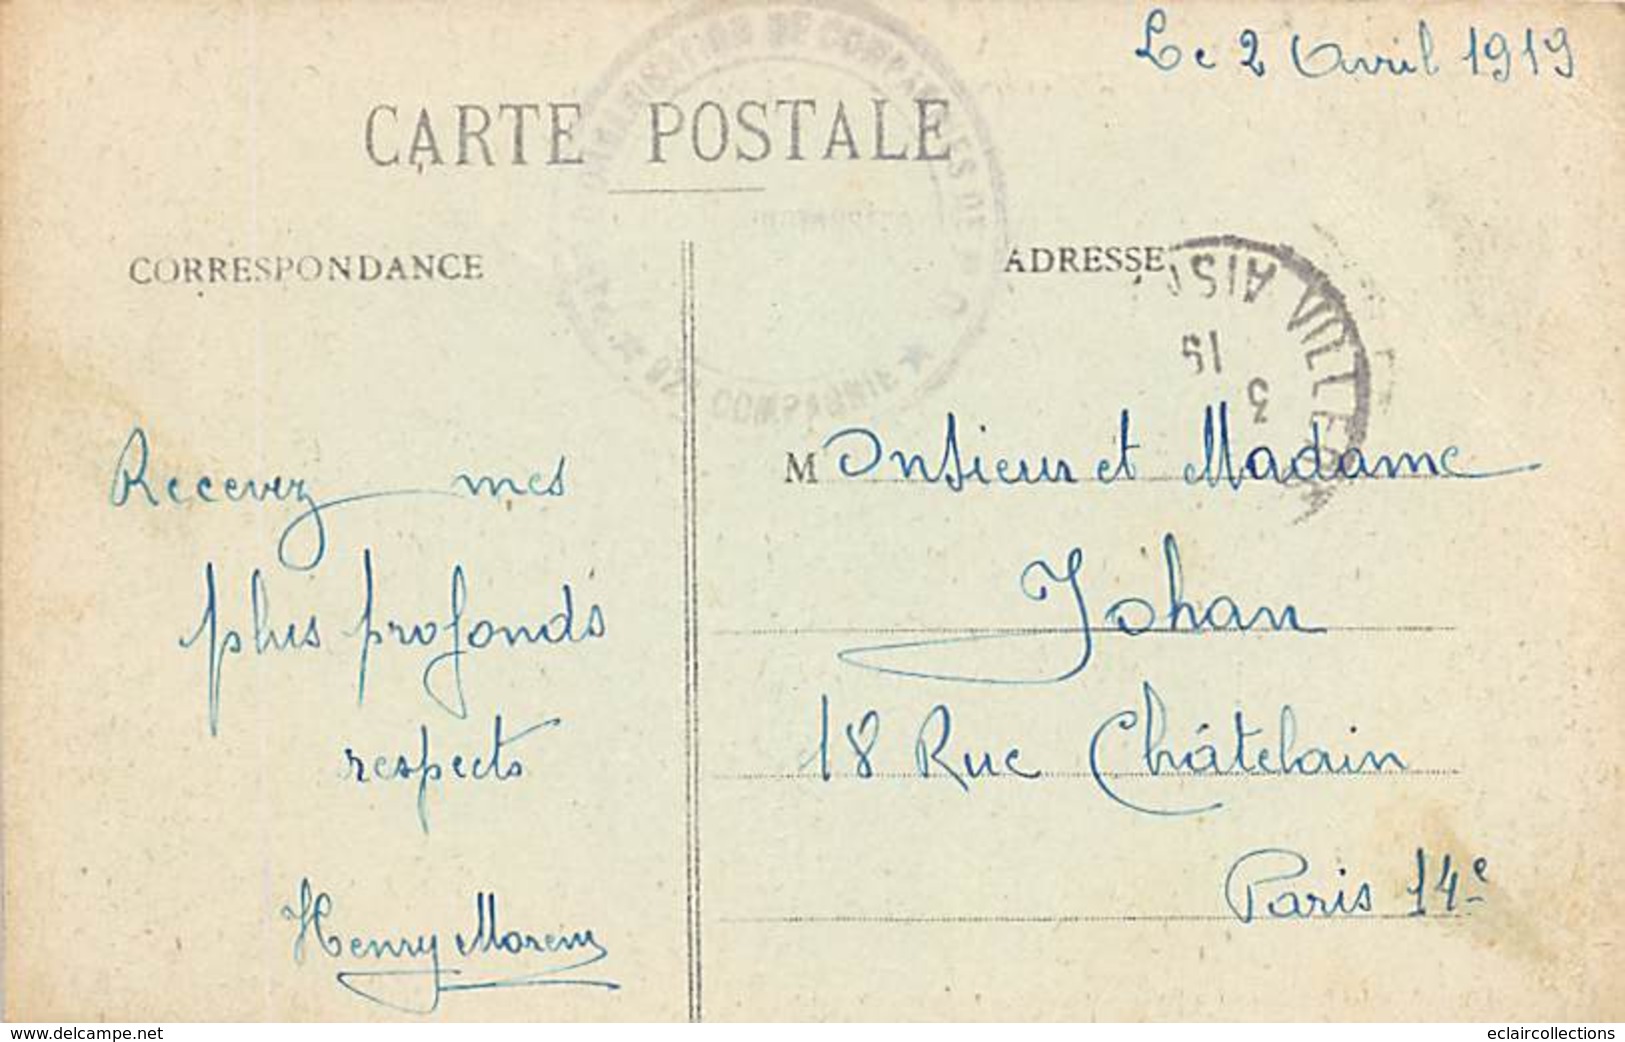 Le 2 Avril 1919
CARTE POSTALE
CORRESPONDANCE
ADRESSE
DE COMPAGNIES DE
COMPAGNIE
AIS
VILLE
3
19
Recevez mes
plus profonds
respects
Henry
Monsieur et Madame
Johan
18 Rue Châtelain
Paris 14e
www.delcampe.net
eclaircollections